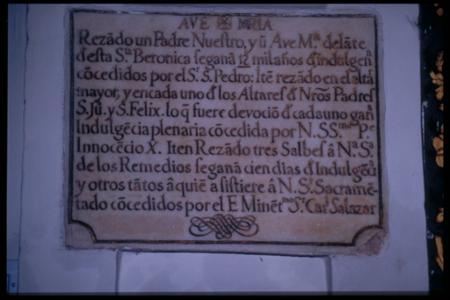 AVE MRIA
Rezãdo un Padre Nuestro, y ũ Ave Mª. delãte
desta Sª. Beronica se ganã 12 mil años đ indulgen
cõcedidos por el Sr. S. Pedro: Itẽ rezãdo en el altã
mayor, y en cada uno đ los Altares đ Nros Padres
S. Jũ. y S. Felix. lo q̃ fuere devociõ đ cada uno ganã
Indulgẽcia plenaria cõcedida por N. SSmo. Pe.
Innocẽcio X. Iten Rezãdo tres Salbes â Nª. Sª.
de los Remedios se ganã cien dias đ Indulgẽcª
y otros tãtos â quiẽ asistiere â N. Sr. Sacramẽ-
tado cõcedidos por el E Minẽtmo Sr. Carl. Salazar